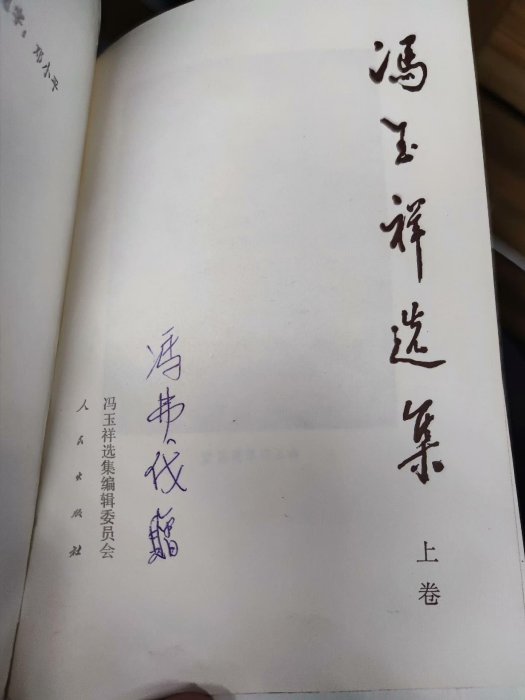 馮玉祥选集
上卷
冯弗伐赠
冯玉祥选集编辑委员会
人民出版社